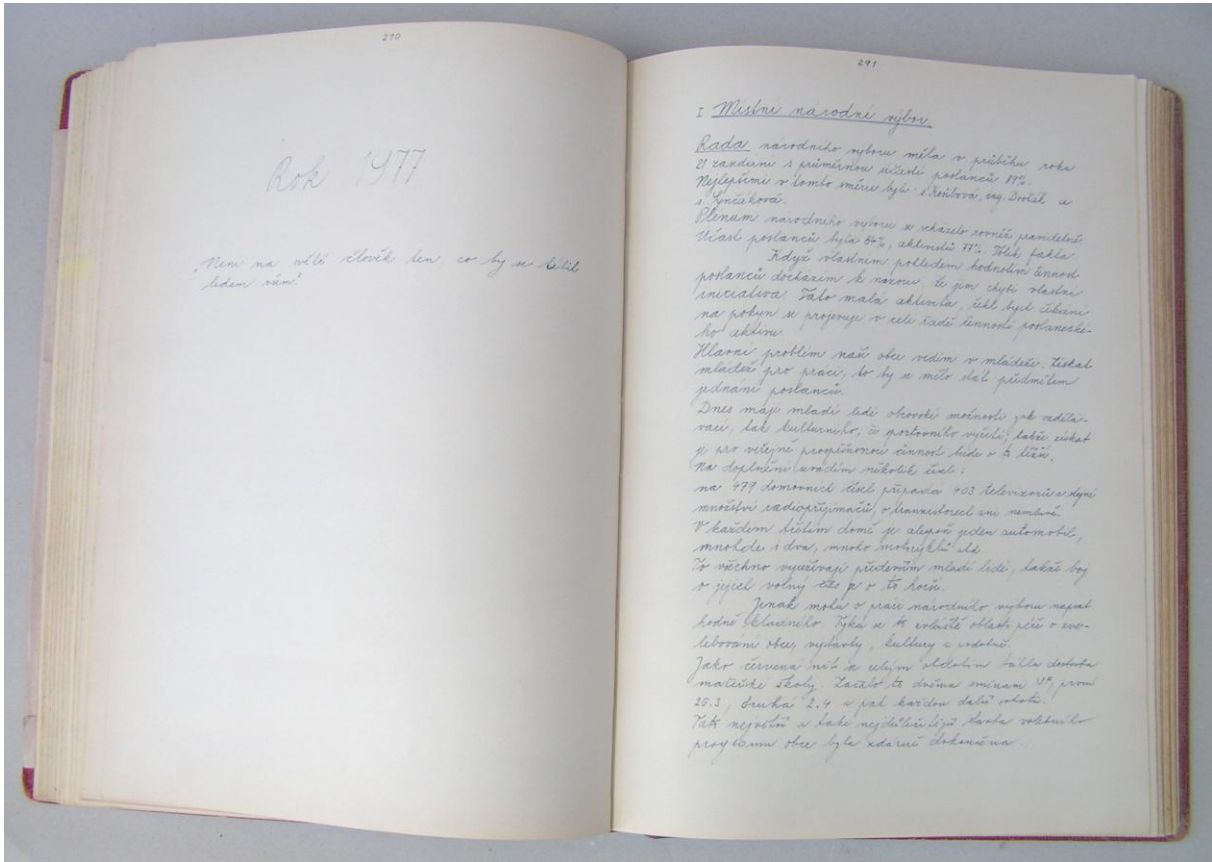 290
Rok 1977
„Není na světě člověk ten, co by se líbil
lidem všem."
291
I Místní národní výbor
Rada národního výboru měla v průběhu roku
21 zasedání s průměrnou účastí poslanců 89%.
Nejlepšími v tomto směru byli: s. ing. Dvořák a
s.
Plenum národního výboru se scházelo rovněž pravidelně.
Účast poslanců byla 84%, aktivistů 77%. Tolik fakta.
Když vlastním pohledem hodnotím činnost
poslanců docházím k názoru, že jim chybí vlastní
iniciativa. Tato malá aktivita, čekat na
na pokyn se projevuje v celé řadě činností poslanecké-
ho aktivu.
Hlavní problém naší obce vidím v mládeži. Získat
mládež pro práci, to by se mělo stát předmětem
jednání poslanců.
Dnes mají mladí lidé obrovské možnosti jak vzdělá-
vací, tak kulturního, či sportovního vyžití, takže získat
je pro veřejně prospěšnou činnost bude o to těžší.
Na doplnění uvádím několik čísel:
na 479 domovních čísel připadá 403 televizorů a stejné
množství radiopřijímačů, o tranzistorech ani nemluvě.
V každém třetím domě je alespoň jeden automobil,
mnohde i dva, mnoho motocyklů atd.
To všechno využívají především mladí lidé, takže boj
o jejich volný čas je o to horší.
Jinak mohu o práci národního výboru napsat
hodně kladného. Týká se to zvláště oblasti péče o zve-
lebování obce, výstavby, kultury a podobně.
Jako červená nit se celým obdobím táhla dostavba
mateřské školy. Začalo to dvěma směnami první
26.3, druhá 2.4 a pak každou další sobotu.
Tak největší a také nejdůležitější stavba volebního
programu obce byla zdárně dokončena.